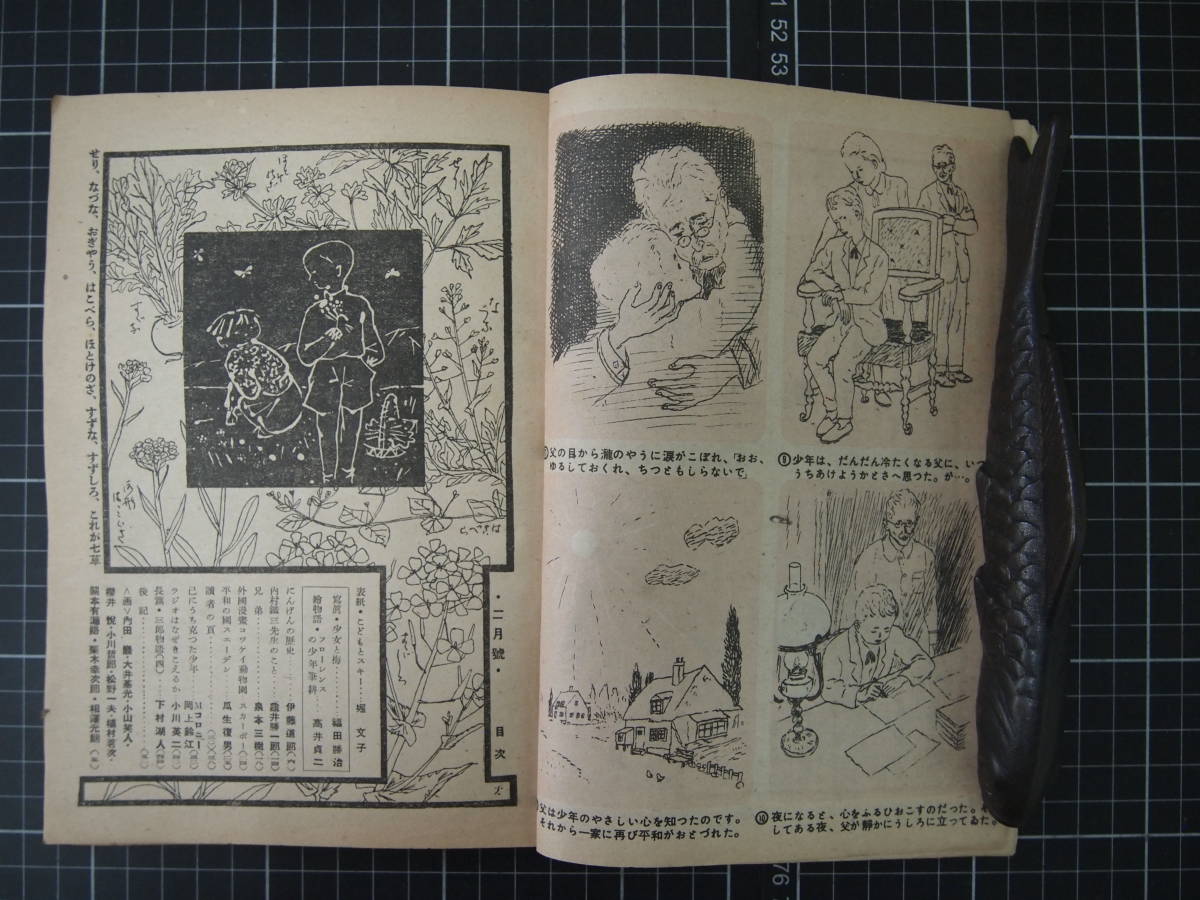 1 52 53
76
せり、なづな、おぎやう、はこべら、ほとけのざ、すずな、すずしろ、これが七草
せり
なづな
はこべら
・二月號・ 目次
表紙・こどもとスキー・堀 文子
寫眞・少女と梅 福田勝治
繪物語・フローレンスの少年筆耕 高井貞二
にんげんの歴史 伊藤道郎
内村鑑三先生のこと 龜井勝一郎
兄弟 泉本三樹
外國漫畫コツケイ動物園 スカーボー
平和の國スエーデン 瓜生復男
讀者の頁
己にうち克つた少年 Mコロニー 岡上鈴江
ラジオはなぜきこえるか 小川英二
長篇・三郎物語(四) 下村湖人
後記
<畫>内田 巖・大井基光・小山榮人・
櫻井 悦・小川哲郎・松野一夫・
關本有漏路・柴木幸次郎・相澤光朗
⑨少年は、だんだん冷たくなる父に、いつ
うちあけようかとさへ思つた。が…。
⑩夜になると、心をふるひおこすのだつた。そ
してある夜、父が靜かにうしろに立つてゐた。
父の目から瀧のやうに涙がこぼれ、「おお、
ゆるしておくれ、ちつともしらないで」
父は少年のやさしい心を知つたのです。
それから一家に再び平和がおとづれた。